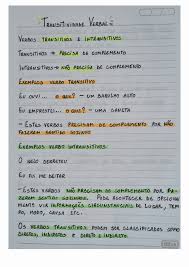 Transitividade Verbal
Verbos transitivos e intransitivos
Transitivos → precisa de complemento
Intransitivos → não precisa de complemento
Exemplos verbo transitivo
Eu ouvi... o que? - um barulho alto
Eu emprestei... o que? - uma caneta
- Estes verbos precisam de complemento por não
fazerem sentido sozinho
Exemplos verbo intransitivos
O gelo derreteu
Eu fui me deitar
- Estes verbos não precisam de complemento por fa-
zerem sentido sozinhos. Pode acontecer de
um informações circunstanciais de lugar, tem-
po, modo, causa etc.
Os verbos transitivos podem ser classificados como
direto, indireto e direto e indireto.